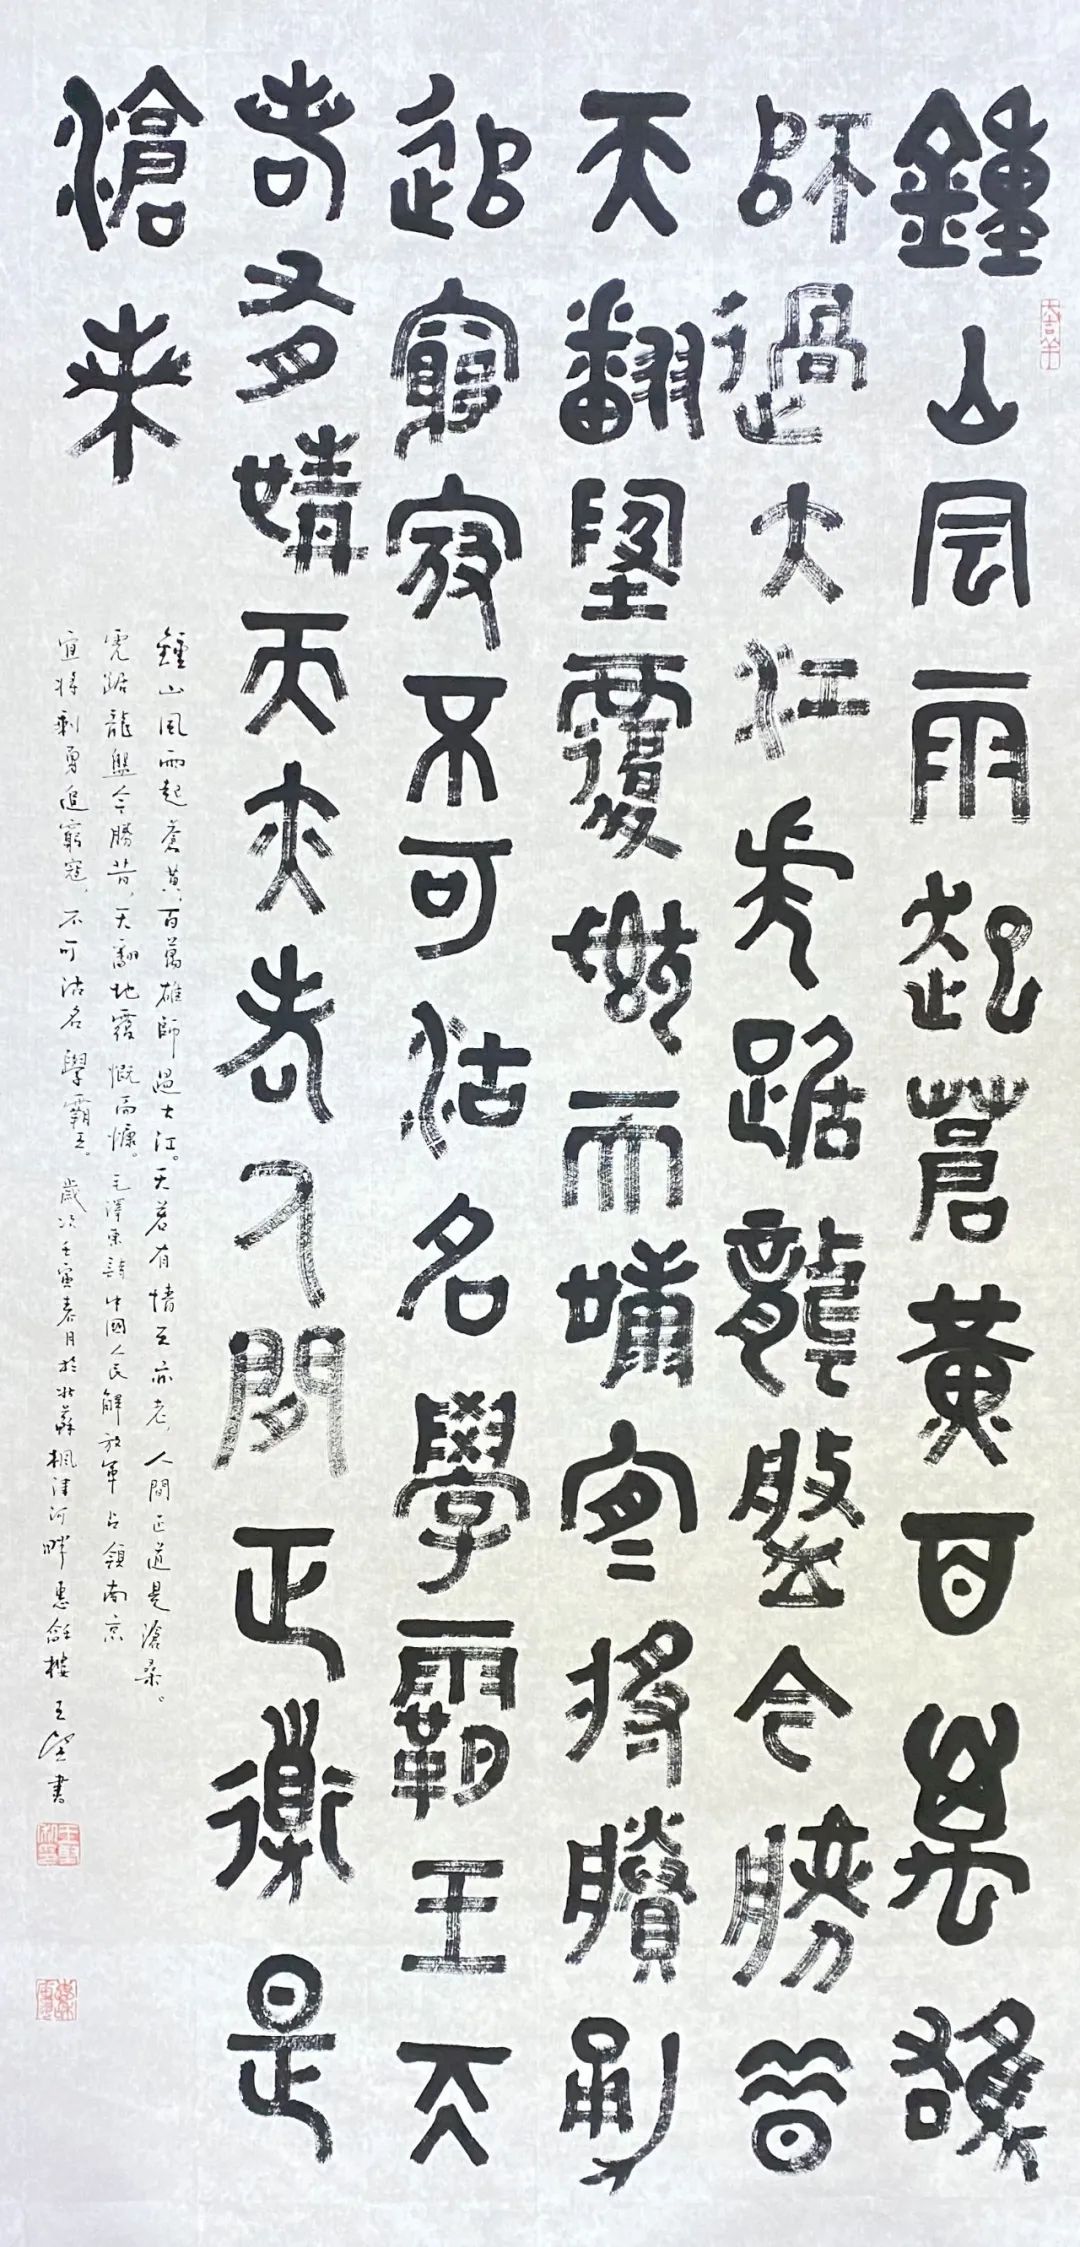 鍾山風雨起蒼黃百萬雄
師過大江虎踞龍盤今勝昔
天翻墬覆慨而慷宜將賸勇
追窮寇不可沽名學霸王天
若有情天亦老人間正道是
滄桑
鍾山風雨起蒼黃,百萬雄師過大江。天若有情天亦老,人間正道是滄桑。
虎踞龍盤今勝昔,天翻地覆慨而慷。毛澤東詩中國人民解放軍占領南京
宜將剩勇追窮寇,不可沽名學霸王。歲次壬寅春月於蘇楓津河畔惠龢樓王書
大吉羊